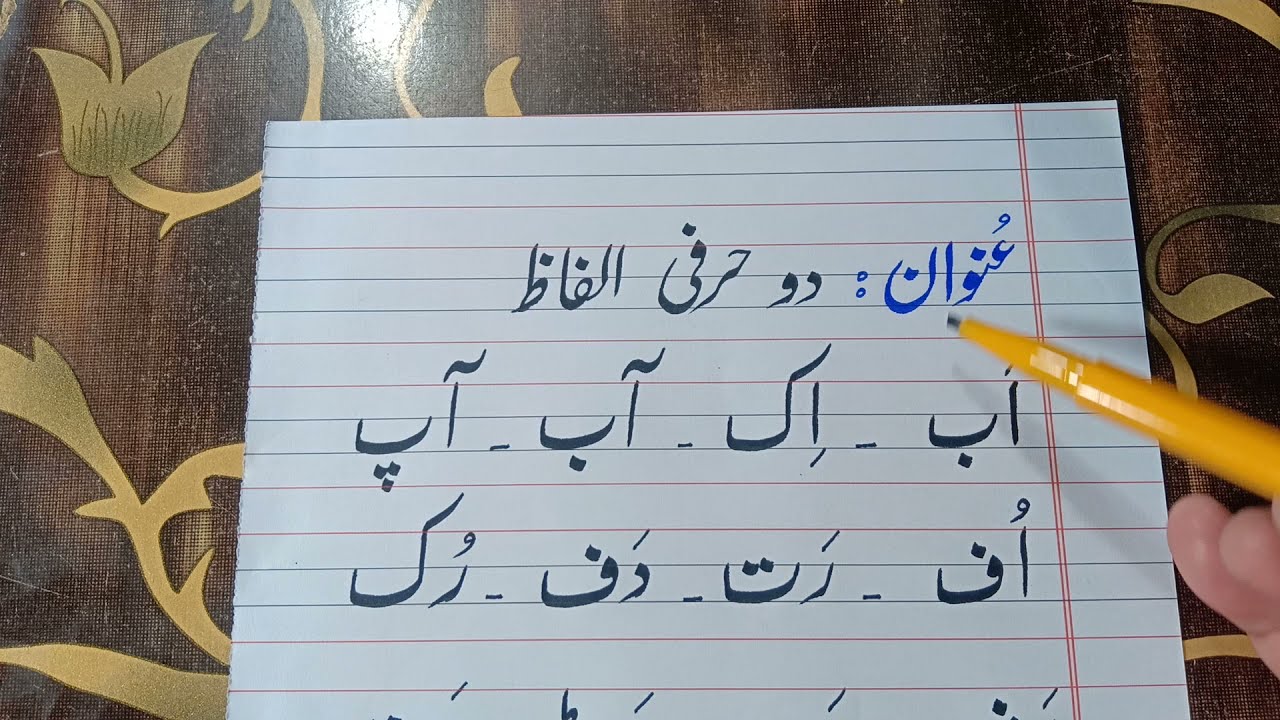 عُنوان: دو حرفی الفاظ
اَب - اِک - آب - آپ
اُف - رَت - دَف - رُک